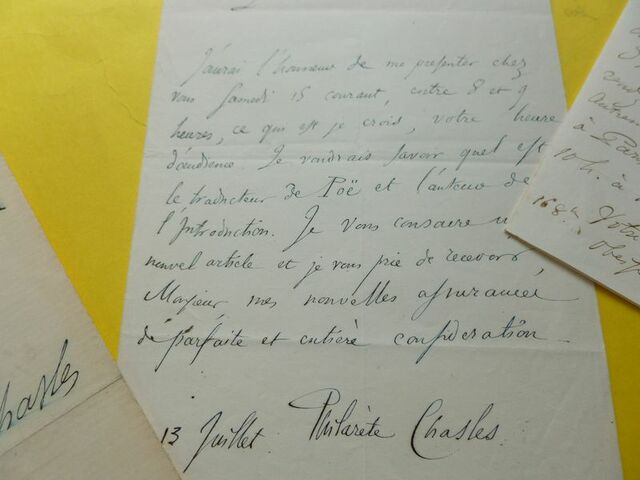 J'aurai l'honneur de me présenter chez
vous Samedi 15 courant, entre 8 et 9
heures, ce qui est je crois, votre heure
d'audience. Je voudrais savoir quel est
le traducteur de Poë et l'auteur de
l'Introduction. Je vous consacre u
nouvel article et je vous prie de recevoir,
Monsieur mes nouvelles assurances
de parfaite et entière considération
13 Juillet. Philarète Chasles
Chasles
à
10h. à
168
Votre